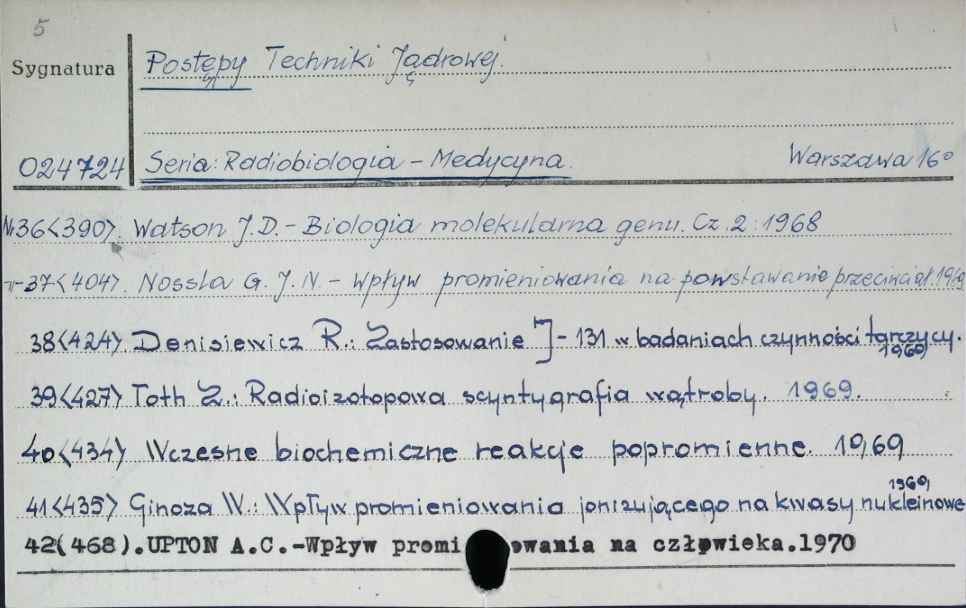 5
Sygnatura Postępy Techniki Jądrowej.
024724 Seria: Radiobiologia - Medycyna. Warszawa 16°
Nr 36<390>. Watson J.D. - Biologia molekularna genu. Cz. 2. 1968
37<404>. Nossla G. J. N. - Wpływ promieniowania na powstawanie przeciwciał. 1969
38<424>. Denisiewicz R.: Zastosowanie J - 131 w badaniach czynności tarczycy. 1969
39<427> Toth Z.: Radioizotopowa scyntygrafia wątroby. 1969.
40<434> Wczesne biochemiczne reakcje popromienne. 1969
41<435> Ginoza W.: Wpływ promieniowania jonizującego na kwasy nukleinowe 1969,
42(468).UPTON A.C.-Wpływ promi owania na człowieka.1970